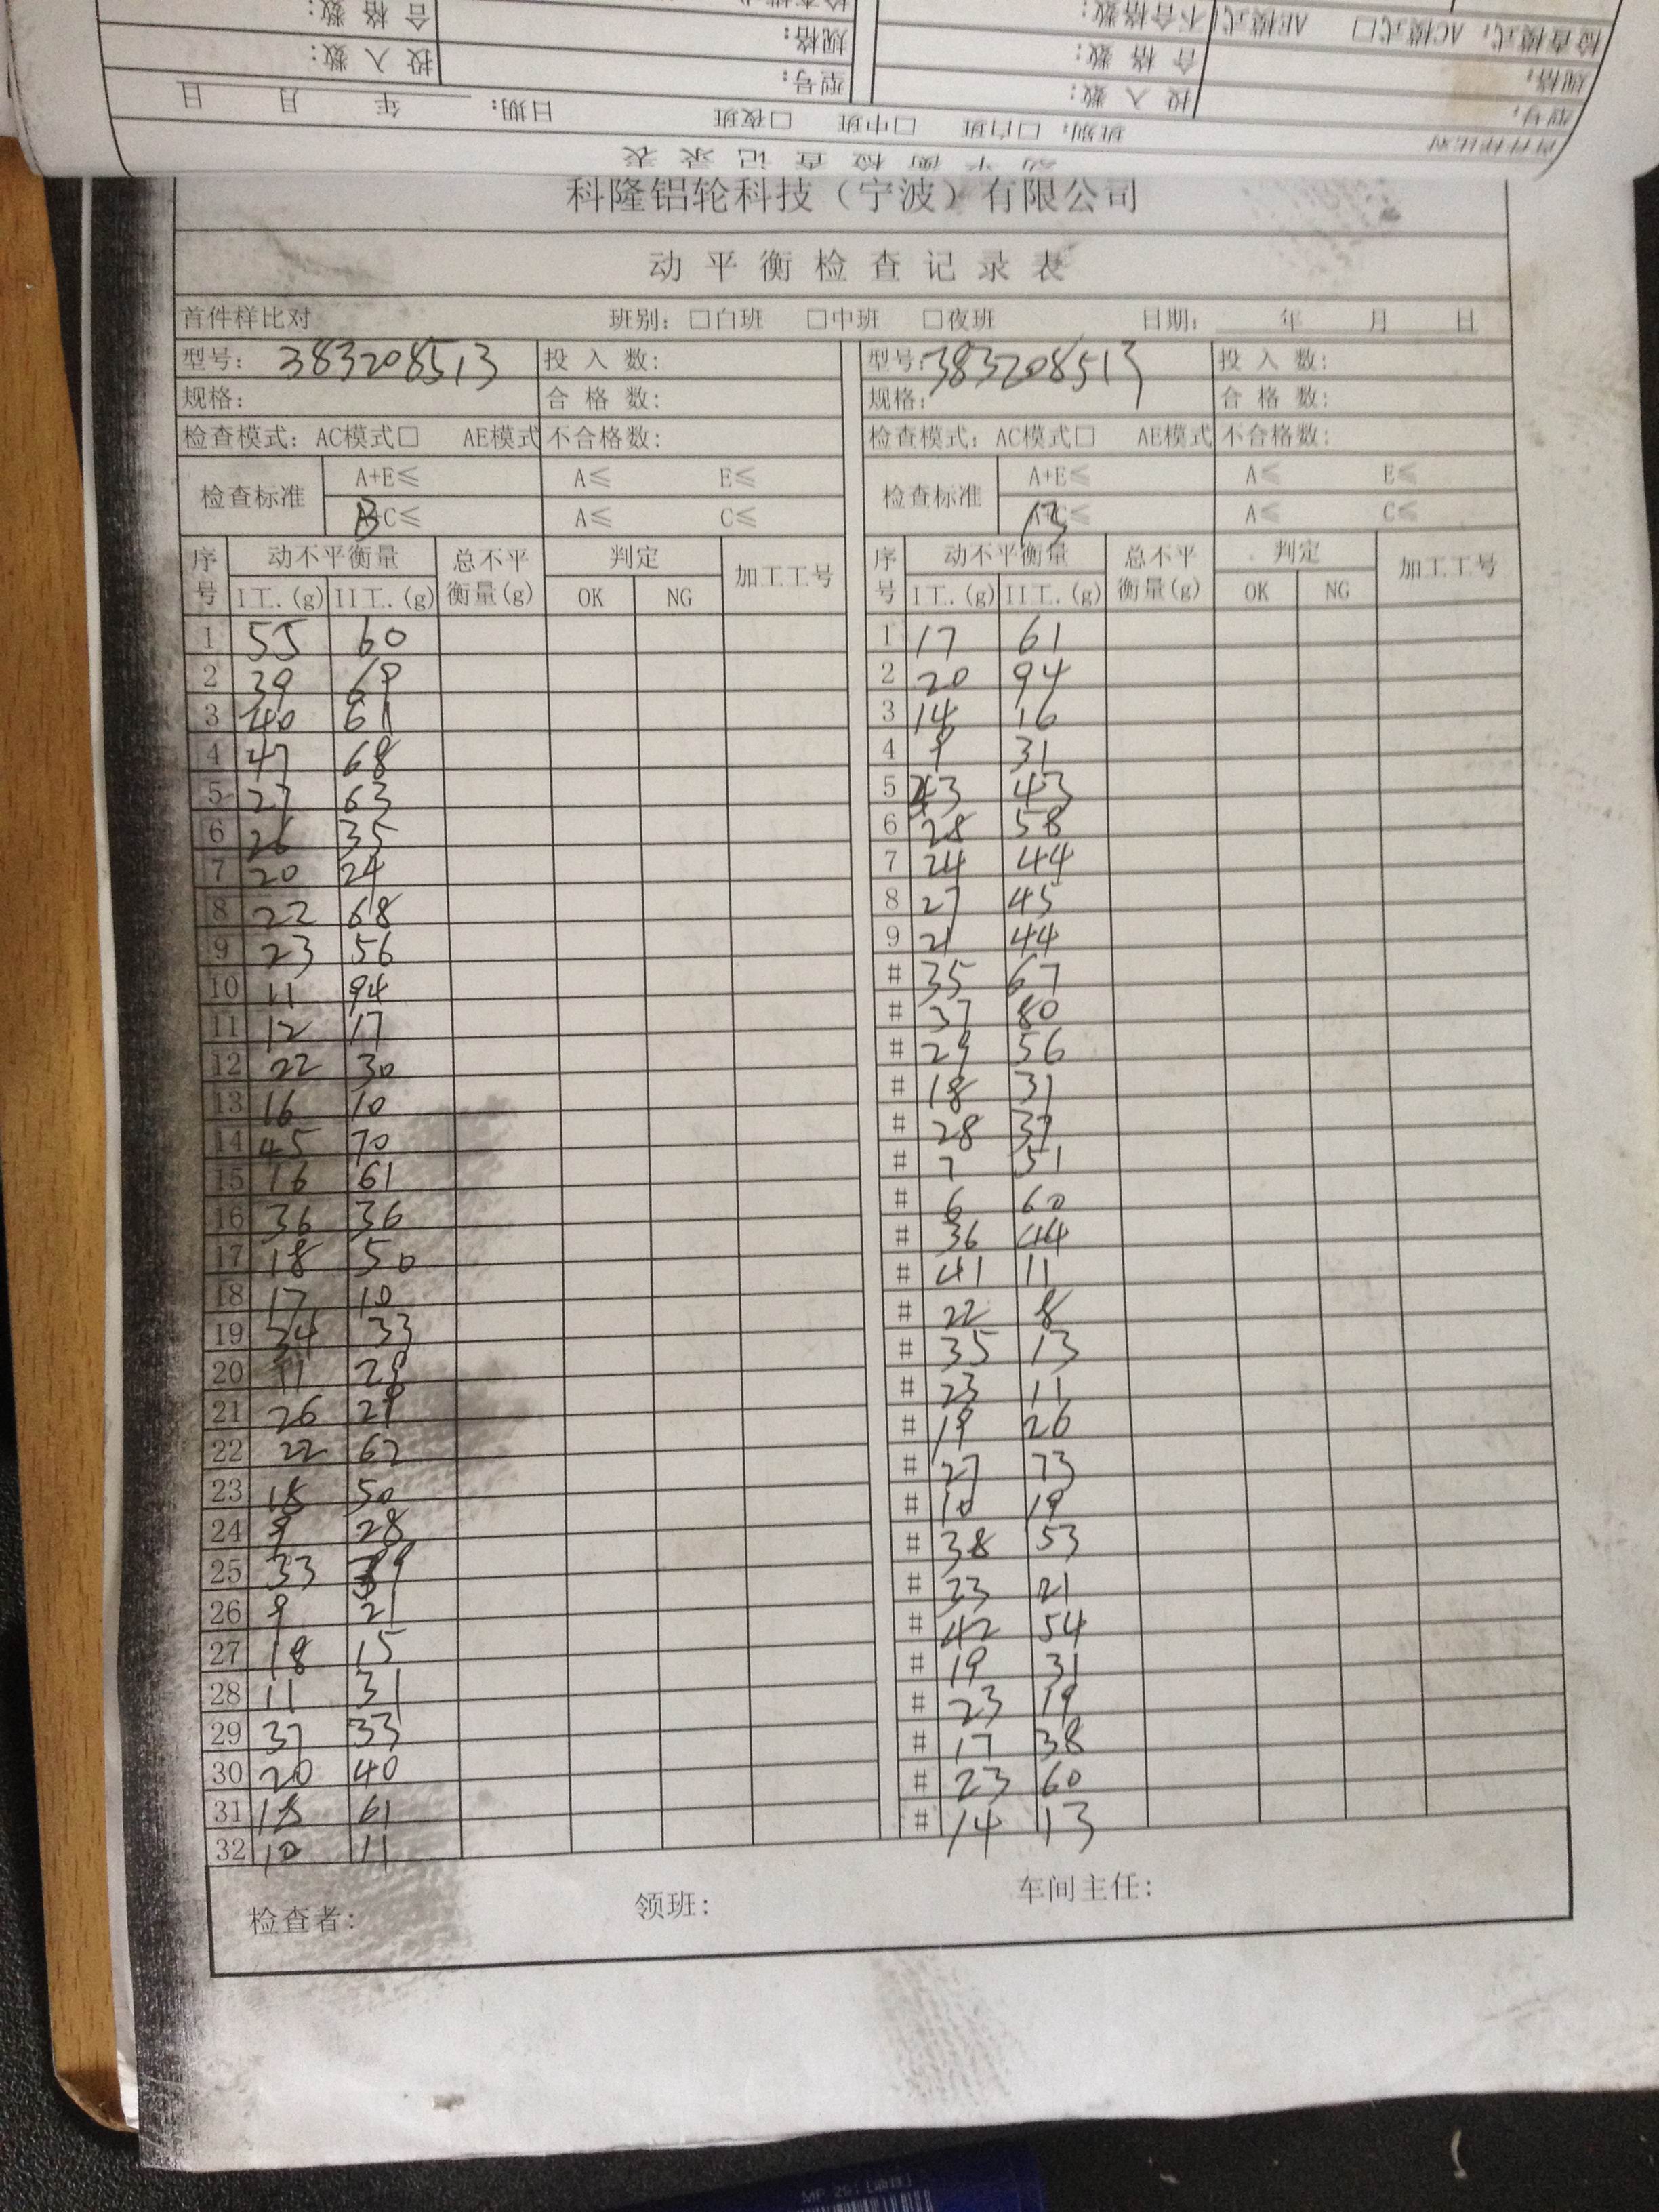 合格数:
规格:
不合格数:
检查模式: AC模式□ AE模式
投入数:
型号:
合格数:
规格:
日期: 年 月 日
班别: □白班 □中班 □夜班
投入数:
型号:
首件样比对
动平衡检查记录表
科隆铝轮科技（宁波）有限公司
动平衡检查记录表
首件样比对 班别: □白班 □中班 □夜班 日期: 年 月 日
型号: 383208513 投入数: 型号: 383208513 投入数:
规格: 合格数: 规格: 合格数:
检查模式: AC模式□ AE模式 不合格数: 检查模式: AC模式□ AE模式 不合格数:
检查标准 A+E≤ A≤ E≤ 检查标准 A+E≤ A≤ E≤
A+C≤ A≤ C≤ A+C≤ A≤ C≤
序号 动不平衡量 总不平衡量(g) 判定 加工工号 序号 动不平衡量 总不平衡量(g) 判定 加工工号
I工.(g) II工.(g) OK NG I工.(g) II工.(g) OK NG
1 55 60 1 17 61
2 39 69 2 20 94
3 40 61 3 14 16
4 47 68 4 9 31
5 27 63 5 43 43
6 26 35 6 28 58
7 20 24 7 24 44
8 22 68 8 27 45
9 23 56 9 21 44
10 11 94 # 35 67
11 12 17 # 37 80
12 22 30 # 29 56
13 16 10 # 18 31
14 45 70 # 28 37
15 16 61 # 7 51
16 36 36 # 6 60
17 18 50 # 36 44
18 17 10 # 41 11
19 34 33 # 22 8
20 11 29 # 35 13
21 26 29 # 23 11
22 22 62 # 19 26
23 18 50 # 27 73
24 9 28 # 10 19
25 33 39 # 38 53
26 9 21 # 23 21
27 18 15 # 42 54
28 11 31 # 19 31
29 37 33 # 23 19
30 20 40 # 17 38
31 18 61 # 23 60
32 10 11 # 14 13
检查者: 领班: 车间主任: